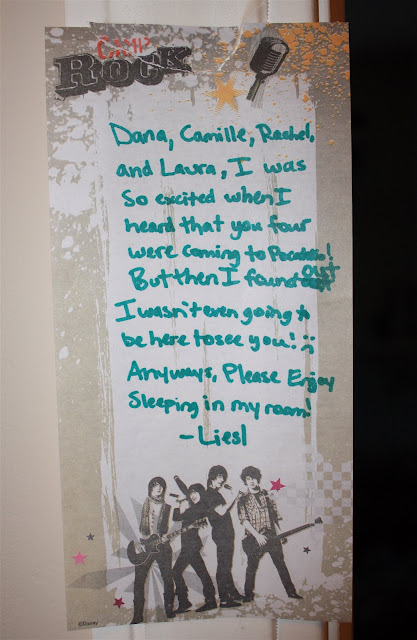 CAMP
ROCK
Dana, Camille, Rachel,
and Laura, I was
so excited when I
heard that you four
were coming to Pocatello!
But then I found out
I wasn't even going to
be here to see you! :(
Anyways, Please Enjoy
Sleeping in my room!
- Liesl
©Disney